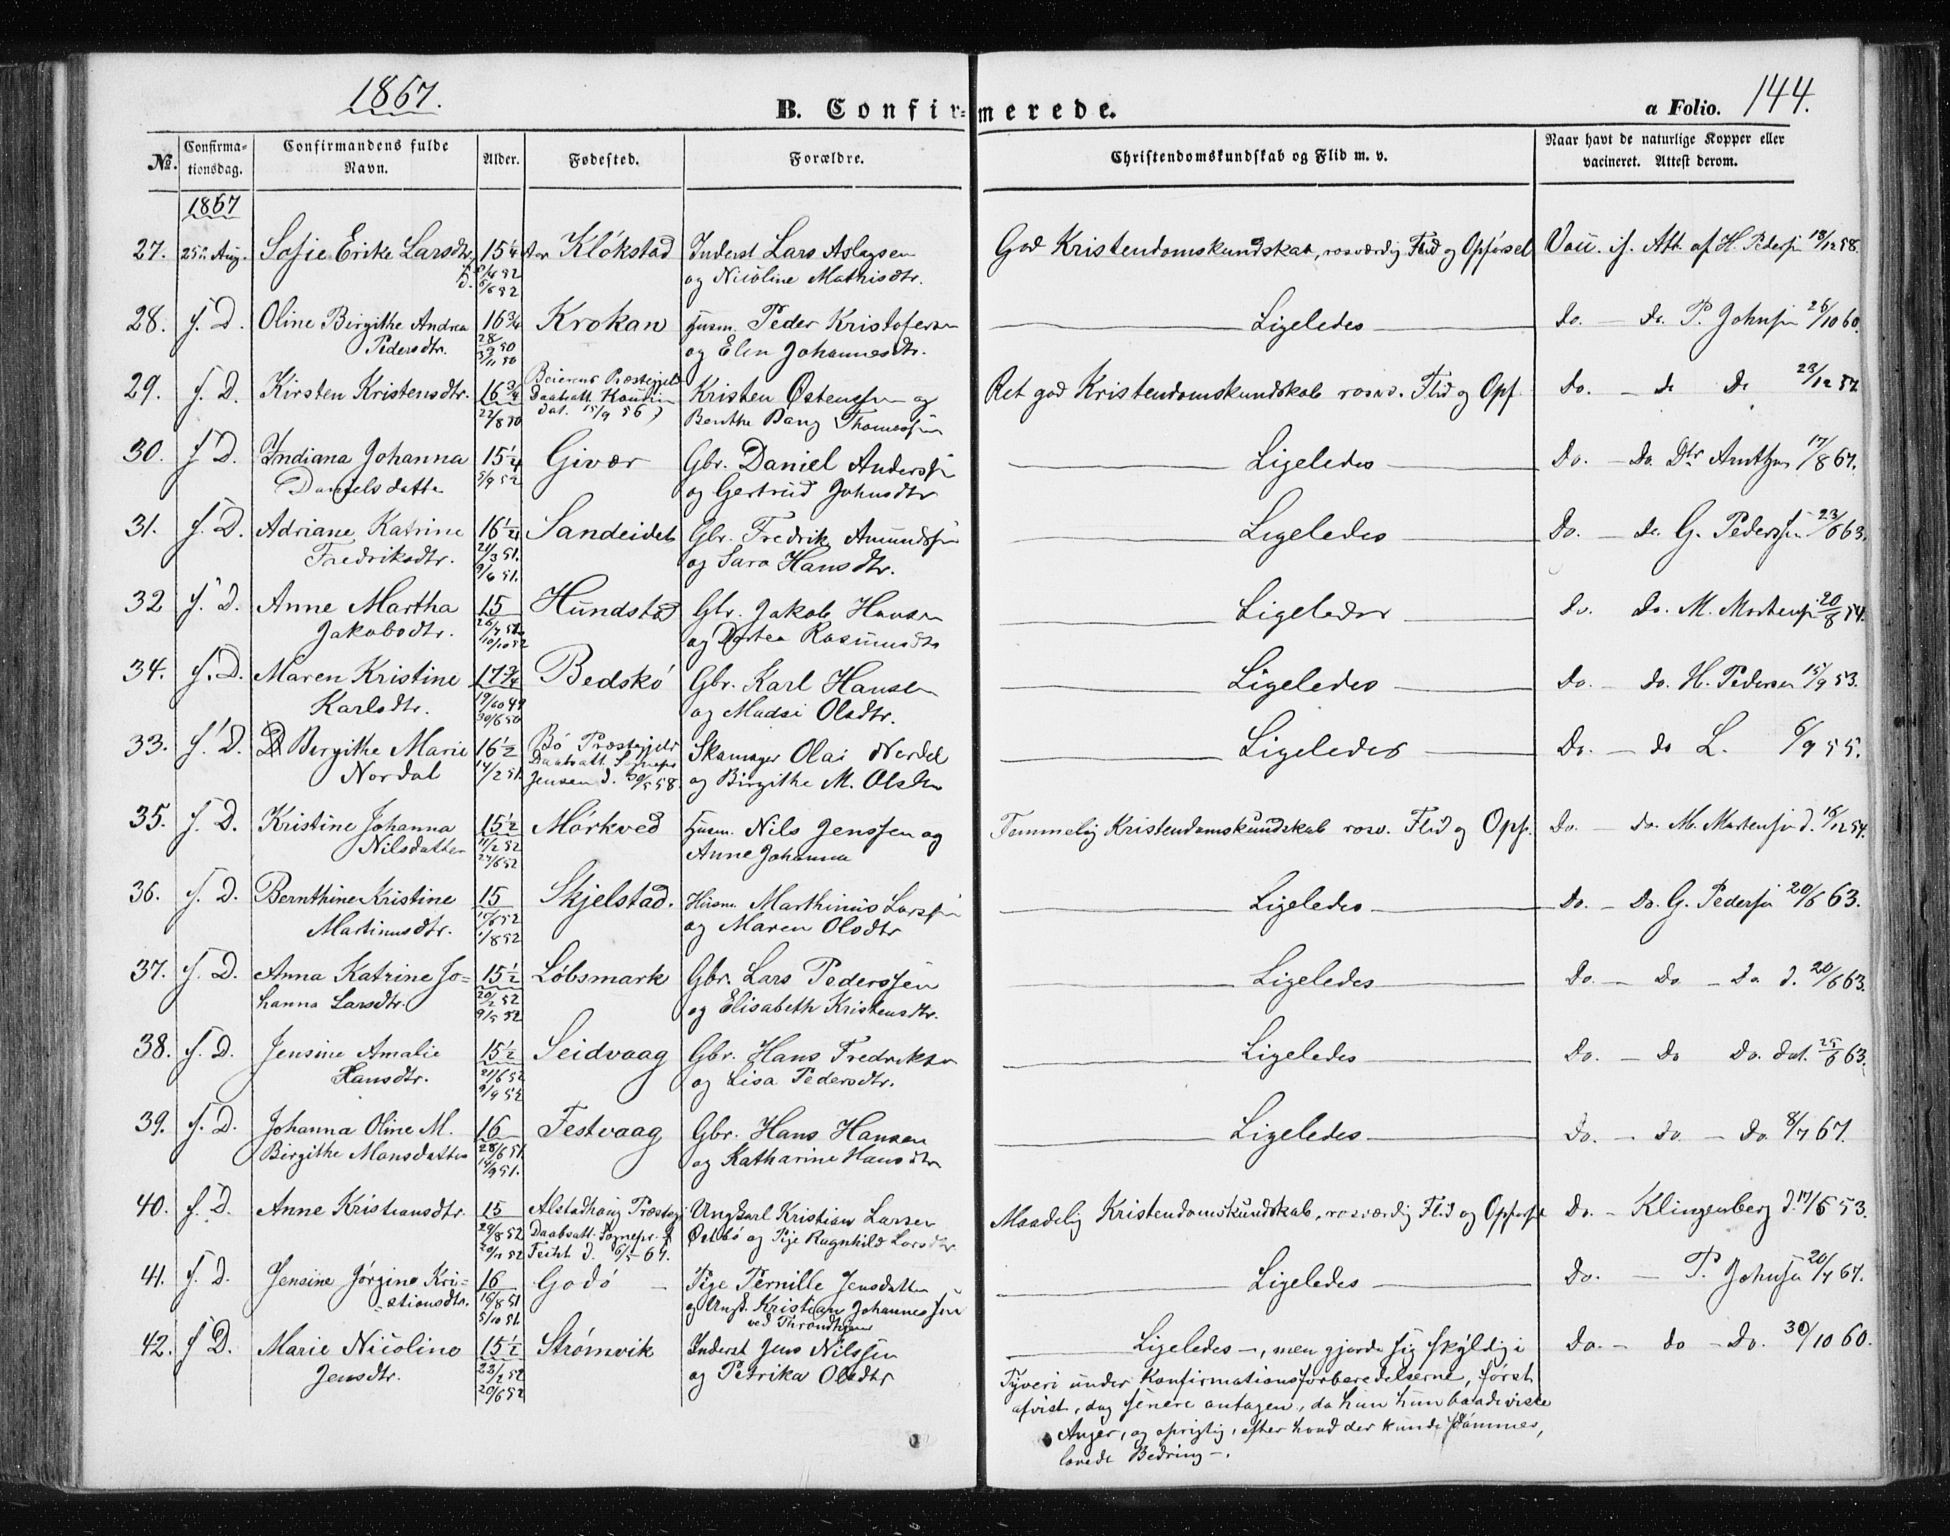 1867.
B. Confirmerede.
a Folio. 144.
№.
Confirmationsdag.
Confirmandens fulde Navn.
Alder.
Fødested.
Forældre.
Christendomskundskab og Flid m. v.
Naar havt de naturlige Kopper eller vacineret. Attest derom.
1867
27. 25de Aug. Sofie Erike Larsdtr. 15 1/4 Klökstad Inderst Lars Aslagsen God Kristendomskundskab, rosværdig Flid og Opförsel Vacc. if. Att. af H. Pedersen 18/12 58.
og Nicoline Mathisdtr.
28. f. D. Oline Birgithe Andrea 16 3/4 Krokan Husm. Peder Kristofersen Ligeledes Do. do. P. Johnsen 26/10 60.
Pedersdtr. og Elen Johannesdtr.
29. f. D. Kirsten Kristensdtr. 16 3/4 Beierens Præstegjeld Kristen Østensen og Ret god Kristendomskundskab rosv. Flid og Opf. Do. do do 23/12 57
22/8 50 dat. 15/9 56) Benthe Bang Thomassen
30. f. D. Indiana Johanna 15 1/4 Givær Gbr. Daniel Anderssen Ligeledes Do. Do. Dtr Arntzen 17/8 67.
Danielsdatter 5/9 52 og Gertrud Johnsdtr
31. f. D. Adriane Katrine 16 1/2 Sandeidet Gbr. Fredrik Amundsen Ligeledes Do. do. G. Pederssen 23/6 63.
Fredriksdtr. 21/3 51. og Sara Hansdtr.
9/6 51.
32 f. D. Anne Martha 15 Hundstad Gbr. Jakob Hansen Ligeledes Do. do. M. Mortensen 20/8 54.
Jakobsdtr. og Dortea Rasmusdtr
10/10 52
34. f. D. Maren Kristine 17 3/4 Bedskö Gbr. Karl Hansen Ligeledes Do. do. H. Pedersen 15/9 53.
Karlsdtr. 19/10 49 og Madsi Olsdtr.
30/6 50
33. f. D. Birgithe Marie 16 1/2 Bö Præstegjeld Skomager Olai Nordal Ligeledes Do. do L. 6/9 55.
Nordal 14/2 51. Jensen d. 30/5 58. og Birgithe M. Olsen
35. f. D. Kristine Johanna 15 1/2 Mörkved Husm. Nils Jenssen og Temmelig Kristendomskundskab rosv. Flid og Opf. Do. do. M. Mortensen d. 16/12 54.
Nilsdatter 11/2 52 Anne Johanna
27/6 52
36. f. D. Bernthine Kristine 15 Skjelstad. Husm. Marthinus Larssen Ligeledes Do. Do. G. Pedersen 20/6 63.
Martinusdtr. 17/6 52 og Maren Olsdtr
1/8 52
37. f. D. Anna Katrine Jo= 15 1/2 Löbsmark Gbr. Lars Pederssen Ligeledes Do. Do Do d. 20/6 63.
hanna Larsdtr. 20/2 52 og Elisabeth Kristensdtr.
9/5 52
38. f. D. Jensine Amalie 15 1/2 Seidvaag Gbr. Hans Fredriksen Ligeledes Do. Do Do. dat. 25/6 63.
Hansdtr. 21/6 52 og Lisa Pedersdtr.
9/9 52
39. f. D. Johanna Oline M. 16 Festvaag Gbr. Hans Hansen Ligeledes Do. do Do 8/7 67.
Birgithe Hansdatter 28/6 51. og Katharine Hansdtr
14/9 51.
40. f. D. Anne Kristiansdtr. 15 Alstadhoug Præstegj. Ungkarl Kristian Larsen Maadelig Kristendomskundskab, rosværdig Flid og Opförsel Do. Klingenberg d. 17/6 53.
29/8 52 Daabsatt. Sognepr. og Pige Ragnhild Larsdtr.
d. 6/5 67.
41. f. D. Jensine Jörgine Kri= 16 Godö Pige Pernille Jensdatter Ligeledes Do. P. Johnsen 20/7 67.
stiansdtr. 15/8 51 og Ungk. Kristian Johannessen
5/10 51. ved Throndhjem
42. f. D. Marie Nicoline 15 1/2 Strömvik Inderst Jens Nilssen Ligeledes, men gjorde sig skyldig i Do. do Do. 30/10 60.
Jensdtr. 23/2 52 og Petrika Olsdtr Tyveri under Konfirmationsforberedelserne, först
20/6 52 afvist, dog senere antagen, da hun baade viste
Anger, og oprigtig, efter hvad der kunde dömmes,
lovede Bedring.